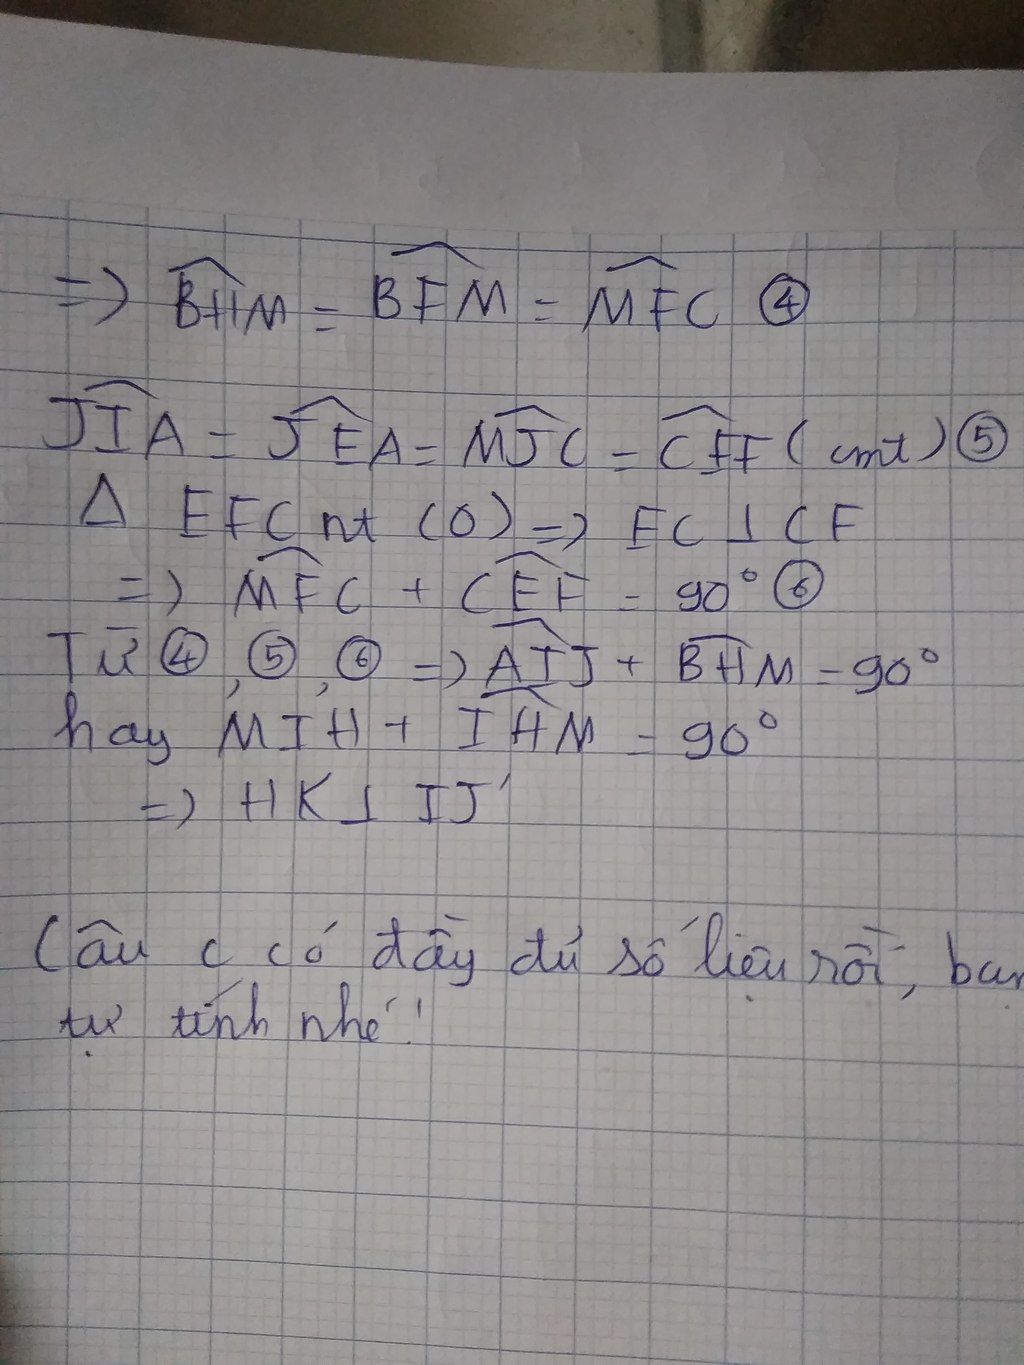 => \widehat{BHM} = \widehat{BFM} = \widehat{MFC} ④
\widehat{JIA} = \widehat{JEA} = \widehat{MJC} = \widehat{CEF} (cmt) ⑤
Δ EFC nt (O) => EC ⊥ CF
=> \widehat{MFC} + \widehat{CEF} = 90° ⑥
Từ ④, ⑤, ⑥ => \widehat{AIJ} + \widehat{BHM} = 90°
hay MIH + \widehat{IHM} = 90°
=> HK ⊥ IJ
Câu c có đầy đủ số liệu rồi, bạn
tự tính nhé!